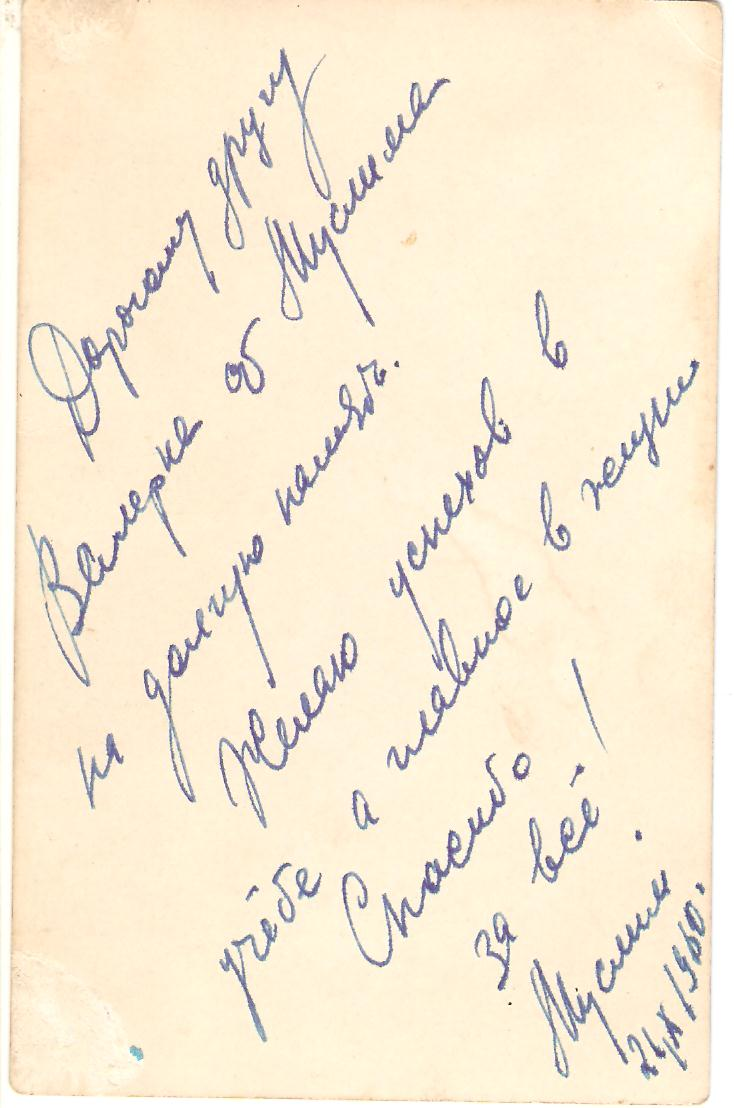 Дорогому другу
Валерке от Муслима
на долгую память.
Желаю успехов в
учёбе а главное в жизни
Спасибо
за всё!
Муслим.
24/X 1960.